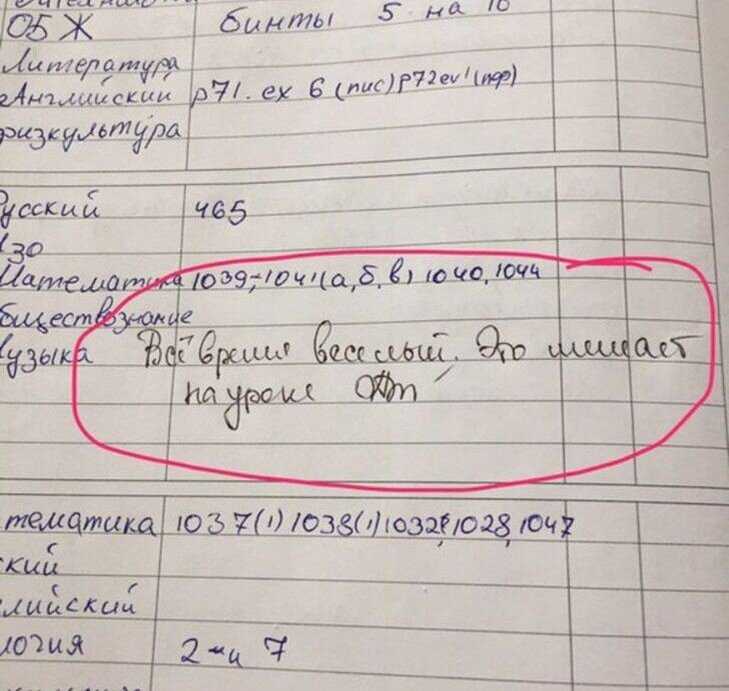 ОБЖ бинты 5 на 10
Литература
Английский p71. ex 6 (пис) p72 ex1 (пер)
физкультура
Русский 465
ИЗО
Математика 1039, 1041(а, б, в) 1040, 1044
бществознание
музыка Всё время веселый. Это мешает
на уроке
тематика 1037(1) 1038(1) 1032, 1028, 1047
ский
лийский
логия 2 и 7